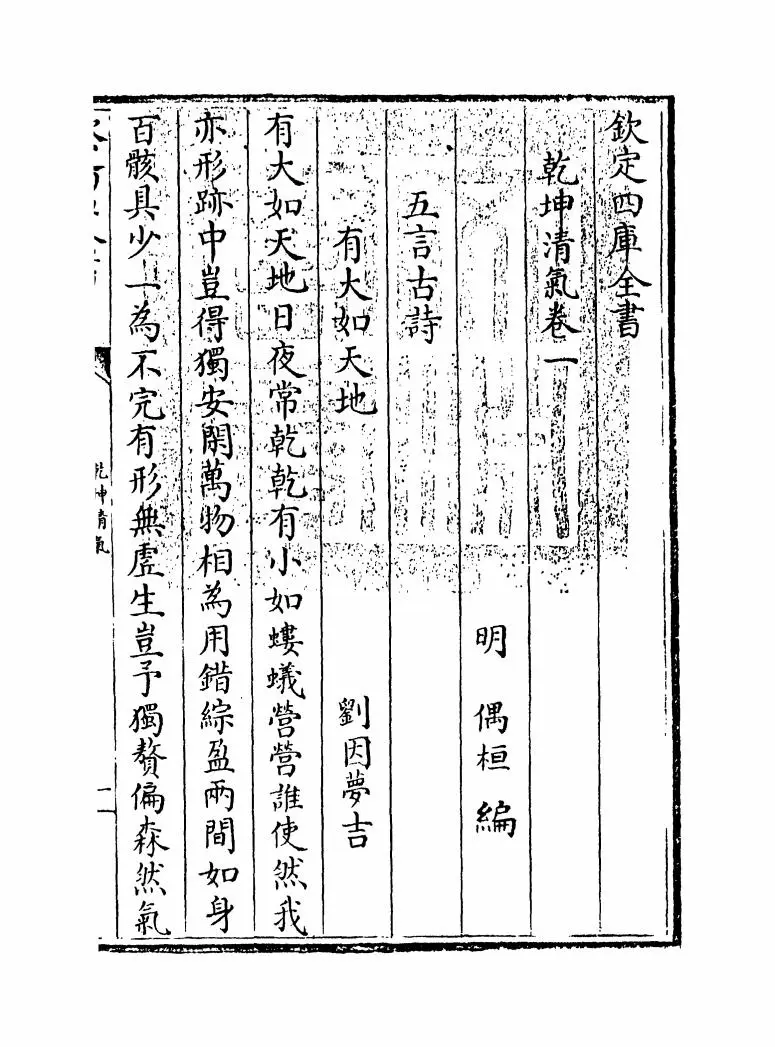 欽定四庫全書
乾坤清氣卷一
明　偶桓　編
五言古詩
有大如天地　劉因夢吉
有大如天地日夜常乾乾有小如螻蟻營營誰使然我
亦形跡中豈得獨安閒萬物相為用錯綜盈兩間如身
百骸具少一為不完有形無虛生豈予獨贅偏森然氣
乾坤清氣
一